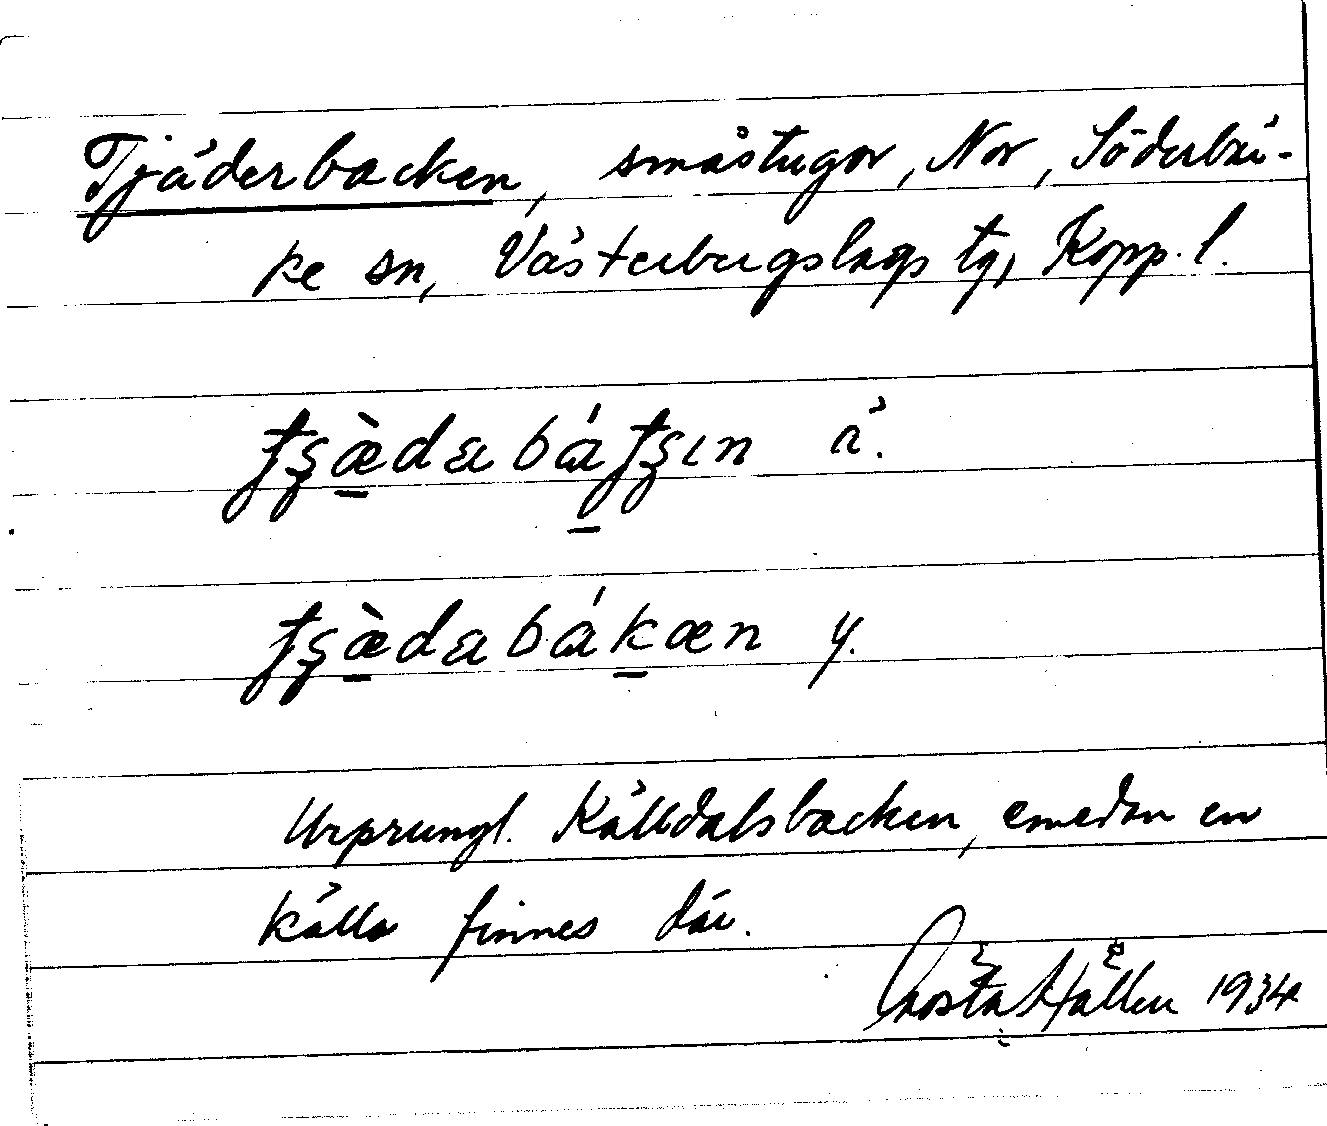 Tjäderbacken, småstugor, Nor, Söderbär-
ke sn, Västerbergslags tg, Kopp. l.
ꞙʂæ̀da bátʂın ä.
tʂæ̀da bákæn y.
Ursprungl. Källdalsbacken, emedan en
källa finnes där.
Gösta Hällen 1934